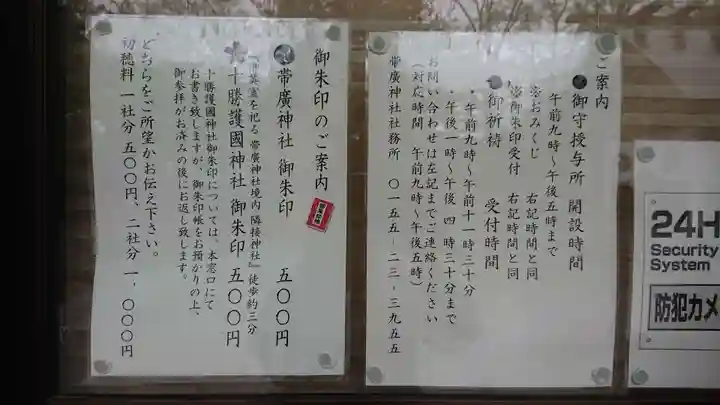 ご案内
●御守授与所 開設時間
午前九時〜午後五時まで
※おみくじ 右記時間と同
※御朱印受付 右記時間と同
●御祈祷 受付時間
・午前九時〜午前十一時三十分
・午後一時〜午後 四時三十分まで
お問い合わせは左記までご連絡ください
(対応時間 午前九時〜午後五時)
帯廣神社社務所 〇一五五-二三-三九五五
御朱印のご案内
帯廣神社 御朱印 五〇〇円
十勝護國神社 御朱印 五〇〇円
『英霊を祀る 帯廣神社境内 隣接神社』徒歩約三分
十勝護國神社御朱印については、本窓口にて
お書き致しますが、御朱印帳をお預かりの上、
御参拝がお済みの後にお返し致します。
どちらをご所望かお伝え下さい。
初穂料 一社分 五〇〇円、二社分 一、〇〇〇円
24H
Security
System
防犯カメ